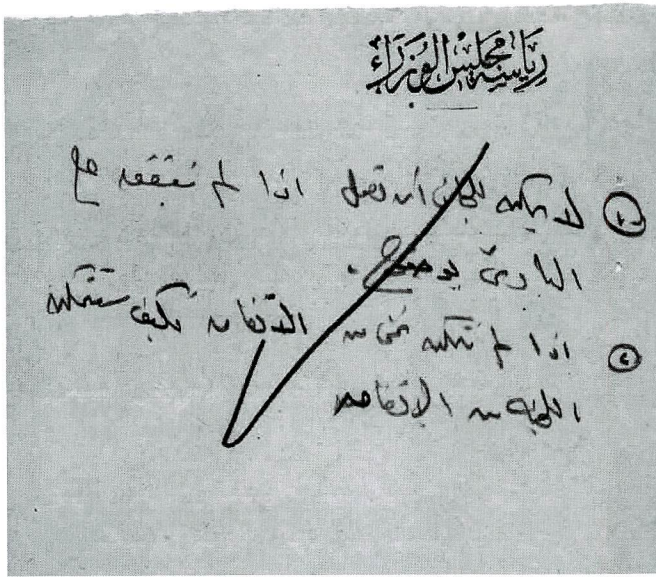 رياسة مجلس الوزراء
① لا يمكن للجان أن تعمل اذا لم نتفق على
المبادئ بوضوح.
② اذا لم نتمكن نحن من الاتفاق فكيف ستتمكن
اللجنة من الاتفاق